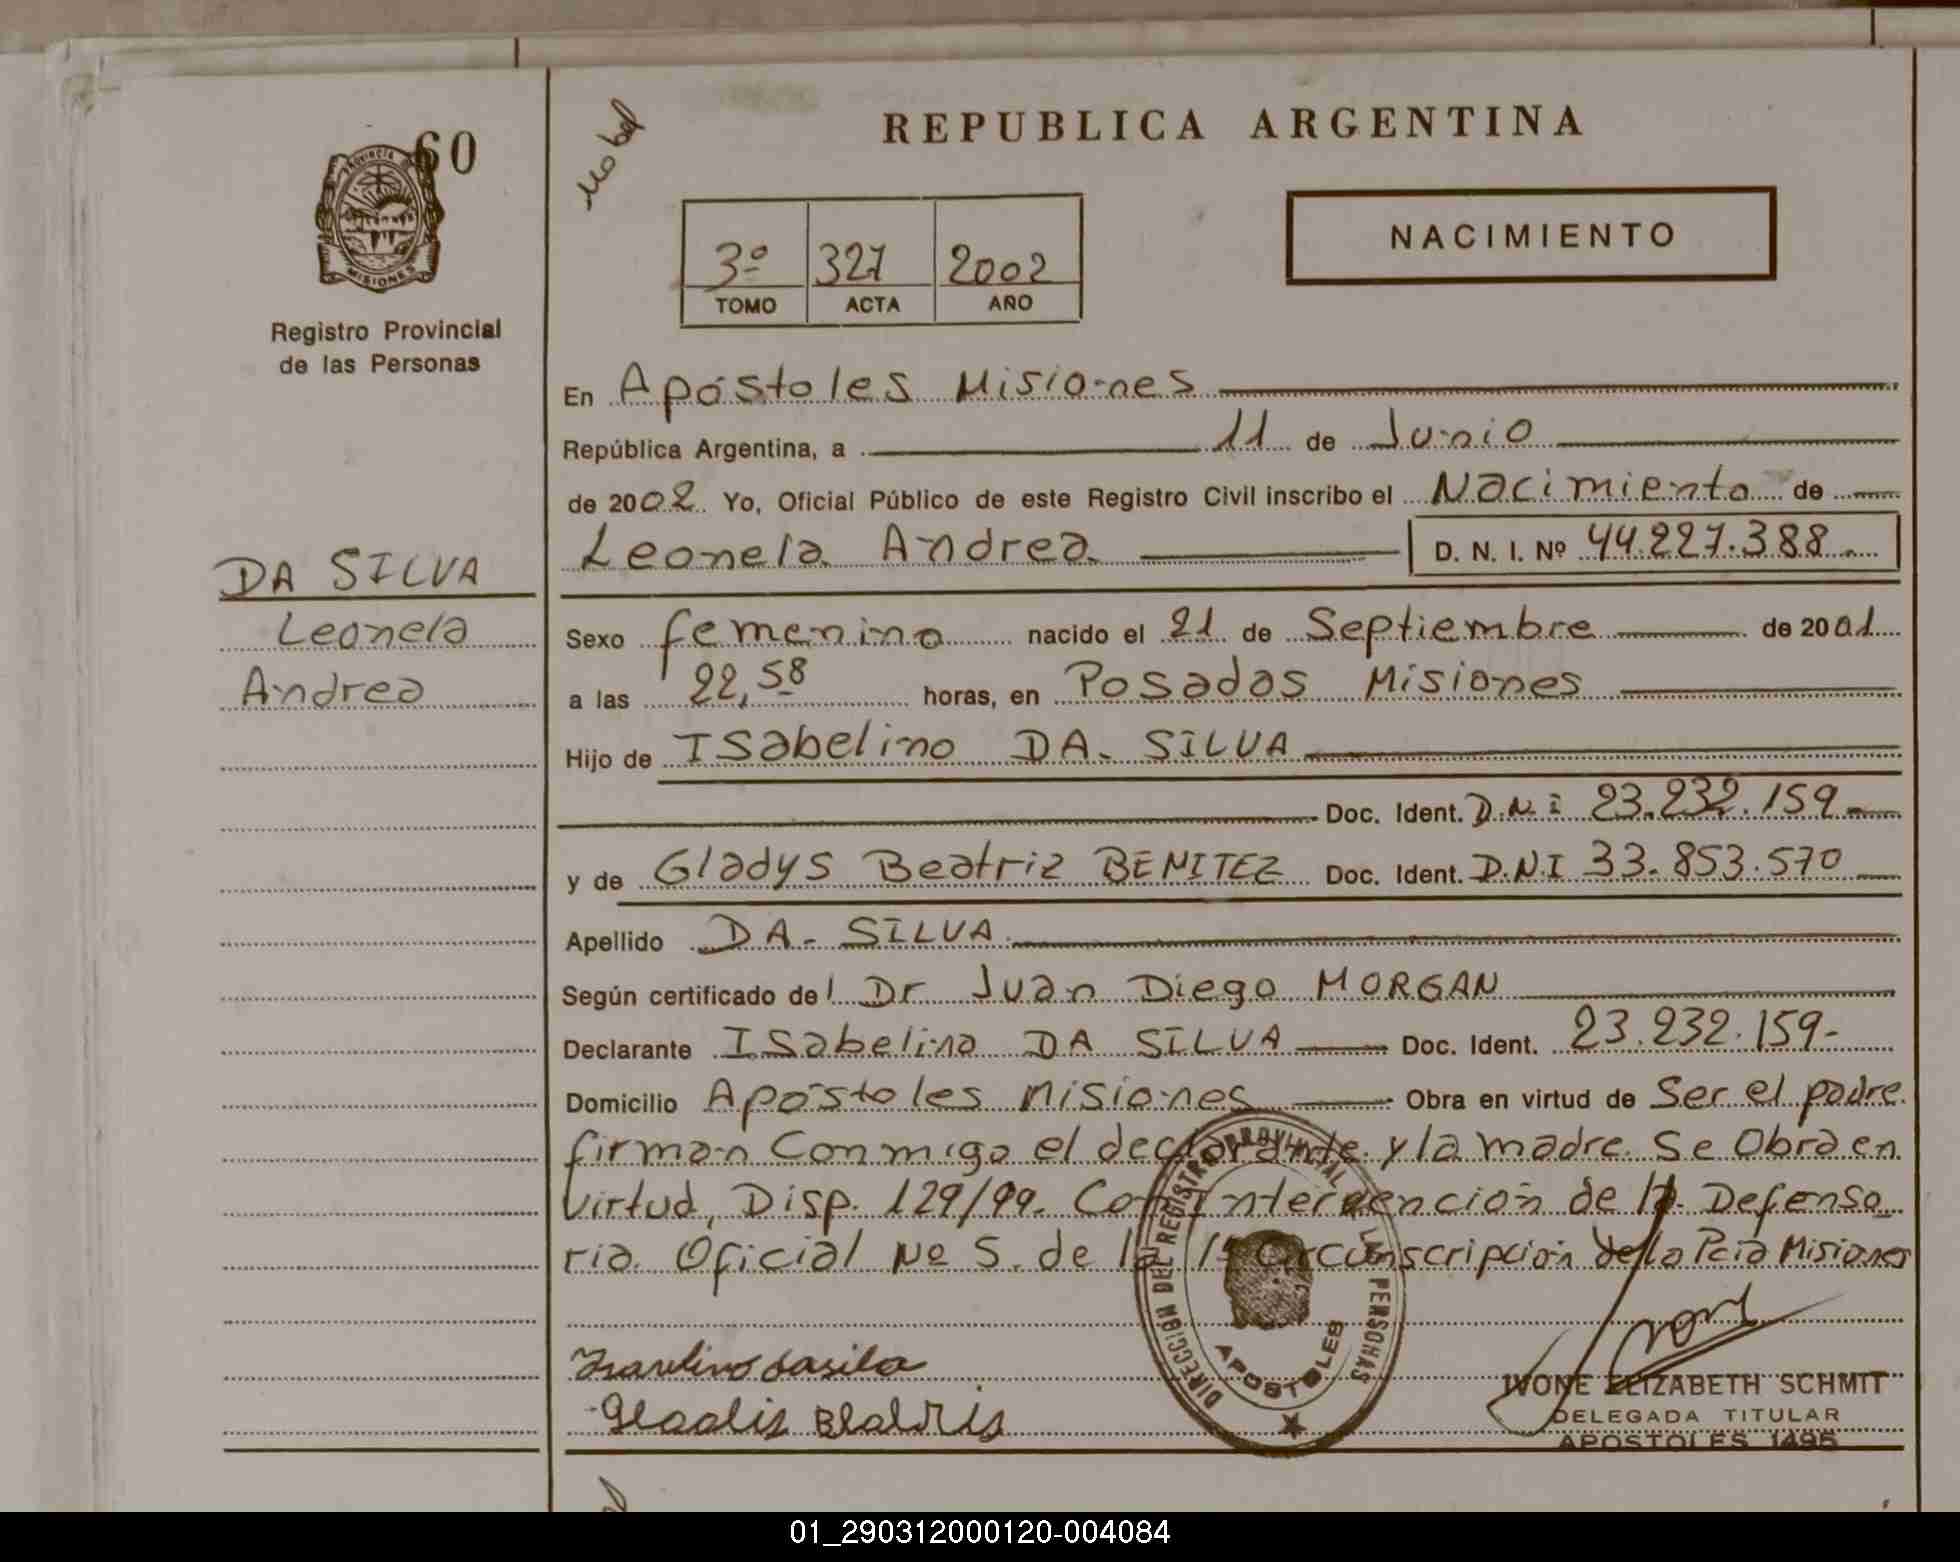 60
PROVINCIA DE
MISIONES
Registro Provincial
de las Personas
REPUBLICA ARGENTINA
NACIMIENTO
3º 327 2002
TOMO ACTA AÑO
En Apóstoles Misiones
República Argentina, a 11 de Junio
de 2002. Yo, Oficial Público de este Registro Civil inscribo el Nacimiento de
Leonela Andrea D. N. I. Nº 44.227.388.
DA SILVA
Leonela
Andrea
Sexo femenino nacido el 21 de Septiembre de 2001
a las 22,58 horas, en Posadas Misiones
Hijo de Isabelino DA- SILVA
Doc. Ident. D.N.I 23.232.159-
y de Gladys Beatriz BENITEZ Doc. Ident. D.N.I 33.853.570
Apellido DA- SILVA
Según certificado del Dr Juan Diego MORGAN
Declarante Isabelino DA SILVA Doc. Ident. 23.232.159-
Domicilio Apóstoles Misiones Obra en virtud de Ser el padre
firman Conmigo el declarante y la madre. Se Obra en
virtud, Disp. 129/99. Con Intervención de la Defenso
ria Oficial Nº 5. de la 1ª Circunscripción de la Pcia Misiones
DIRECCION DEL REGISTRO PROVINCIAL DE LAS PERSONAS
APOSTOLES
IVONE ELIZABETH SCHMIT
DELEGADA TITULAR
APOSTOLES 1495
01_290312000120-004084